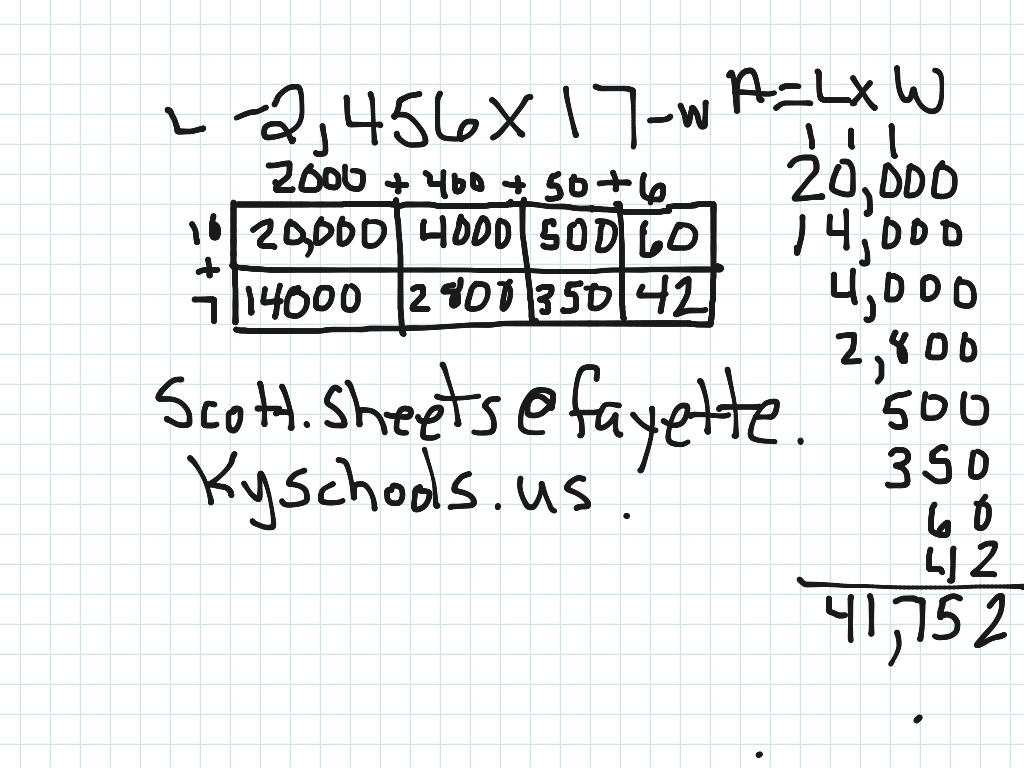 L - 2,456 X 17 - W
A = L X W
2000 + 400 + 50 + 6
10 20,000 4000 500 60
+
7 14000 2800 350 42
Scott.sheets@fayette.
Kyschools.us.
1 1 1
20,000
14,000
4,000
2,800
500
350
60
42
41,752